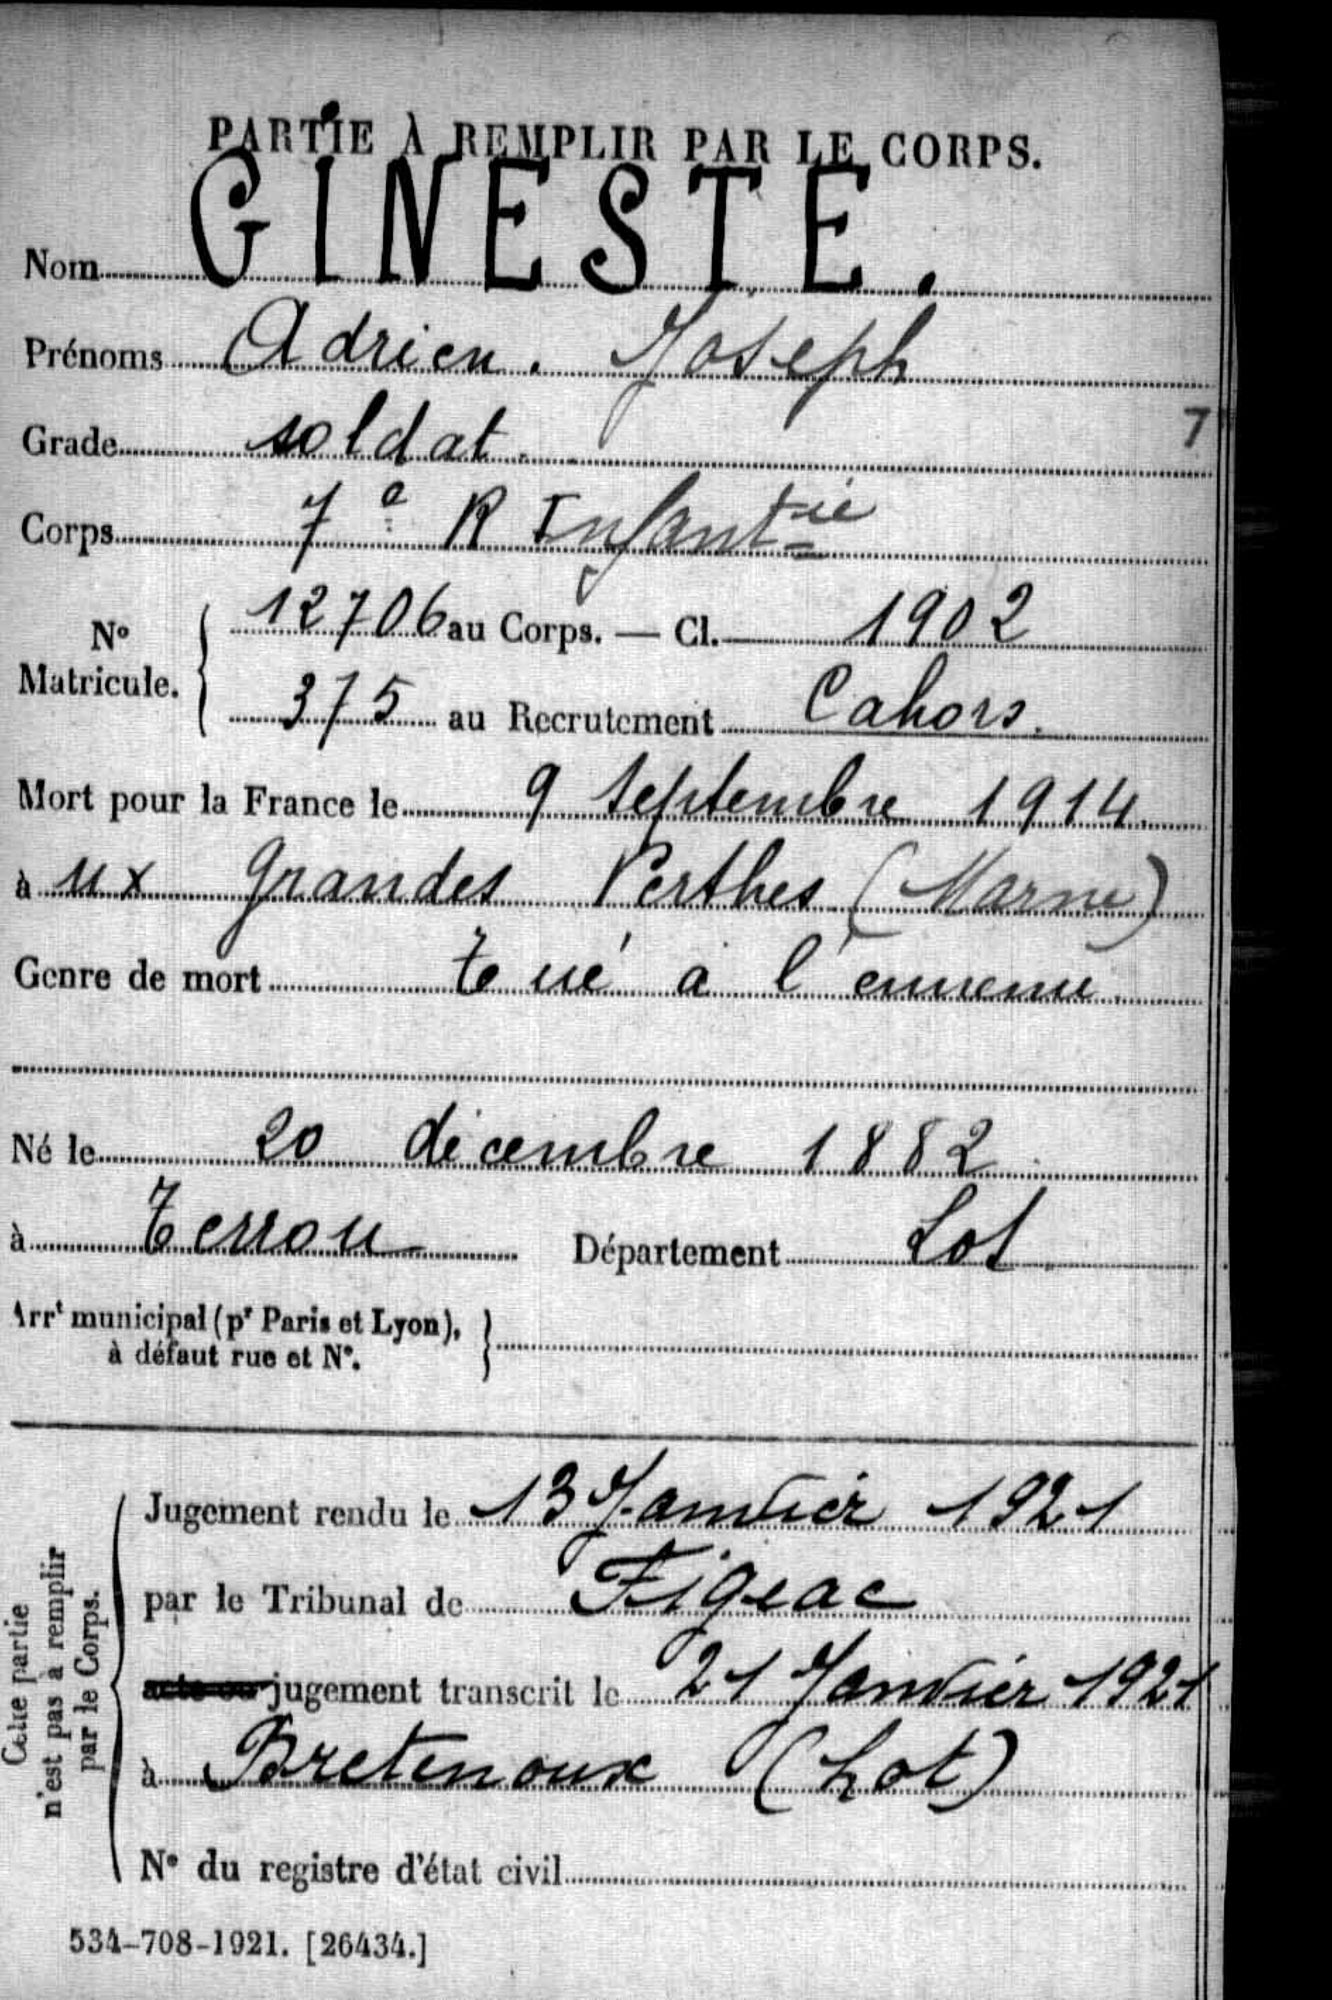 PARTIE À REMPLIR PAR LE CORPS.
Nom GINESTE.
Prénoms Adrien. Joseph
Grade soldat.
7
Corps 7e R Infantie
No Matricule. 12706 au Corps. — Cl. 1902
375 au Recrutement Cahors.
Mort pour la France le 9 Septembre 1914.
à ux Grandes Perthes (Marne)
Genre de mort Tué à l'ennemi
Né le 20 décembre 1882
à Terrou Département Lot
Arrt municipal (pr Paris et Lyon), à défaut rue et No.
Cette partie n'est pas à remplir par le Corps.
Jugement rendu le 13 Janvier 1921
par le Tribunal de Figeac
jugement transcrit le 21 Janvier 1921
à Bretenoux (Lot)
No du registre d'état civil
534-708-1921. [26434.]